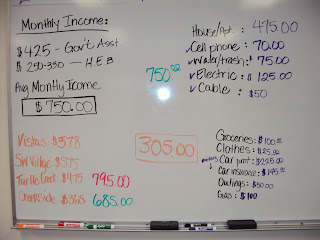 Monthly Income:
$425 - Gov't Asst
$250-350 — H.E.B
Avg Monthly Income
$750.00
750.00
House/Apt. : 475.00
✓Cell phone : 70.00
✓Water/trash: $75.00
✓Electric : $125.00
✓Cable : $50
Vistas: $578
SW Village $575
Turtle Creek $475 795.00
Creekside $365 685.00
305.00
Groceries: $100
Clothes: $25.00
Car pmt: $225.00
Car insurance: $145
Outings: $50.00
Gas: $100